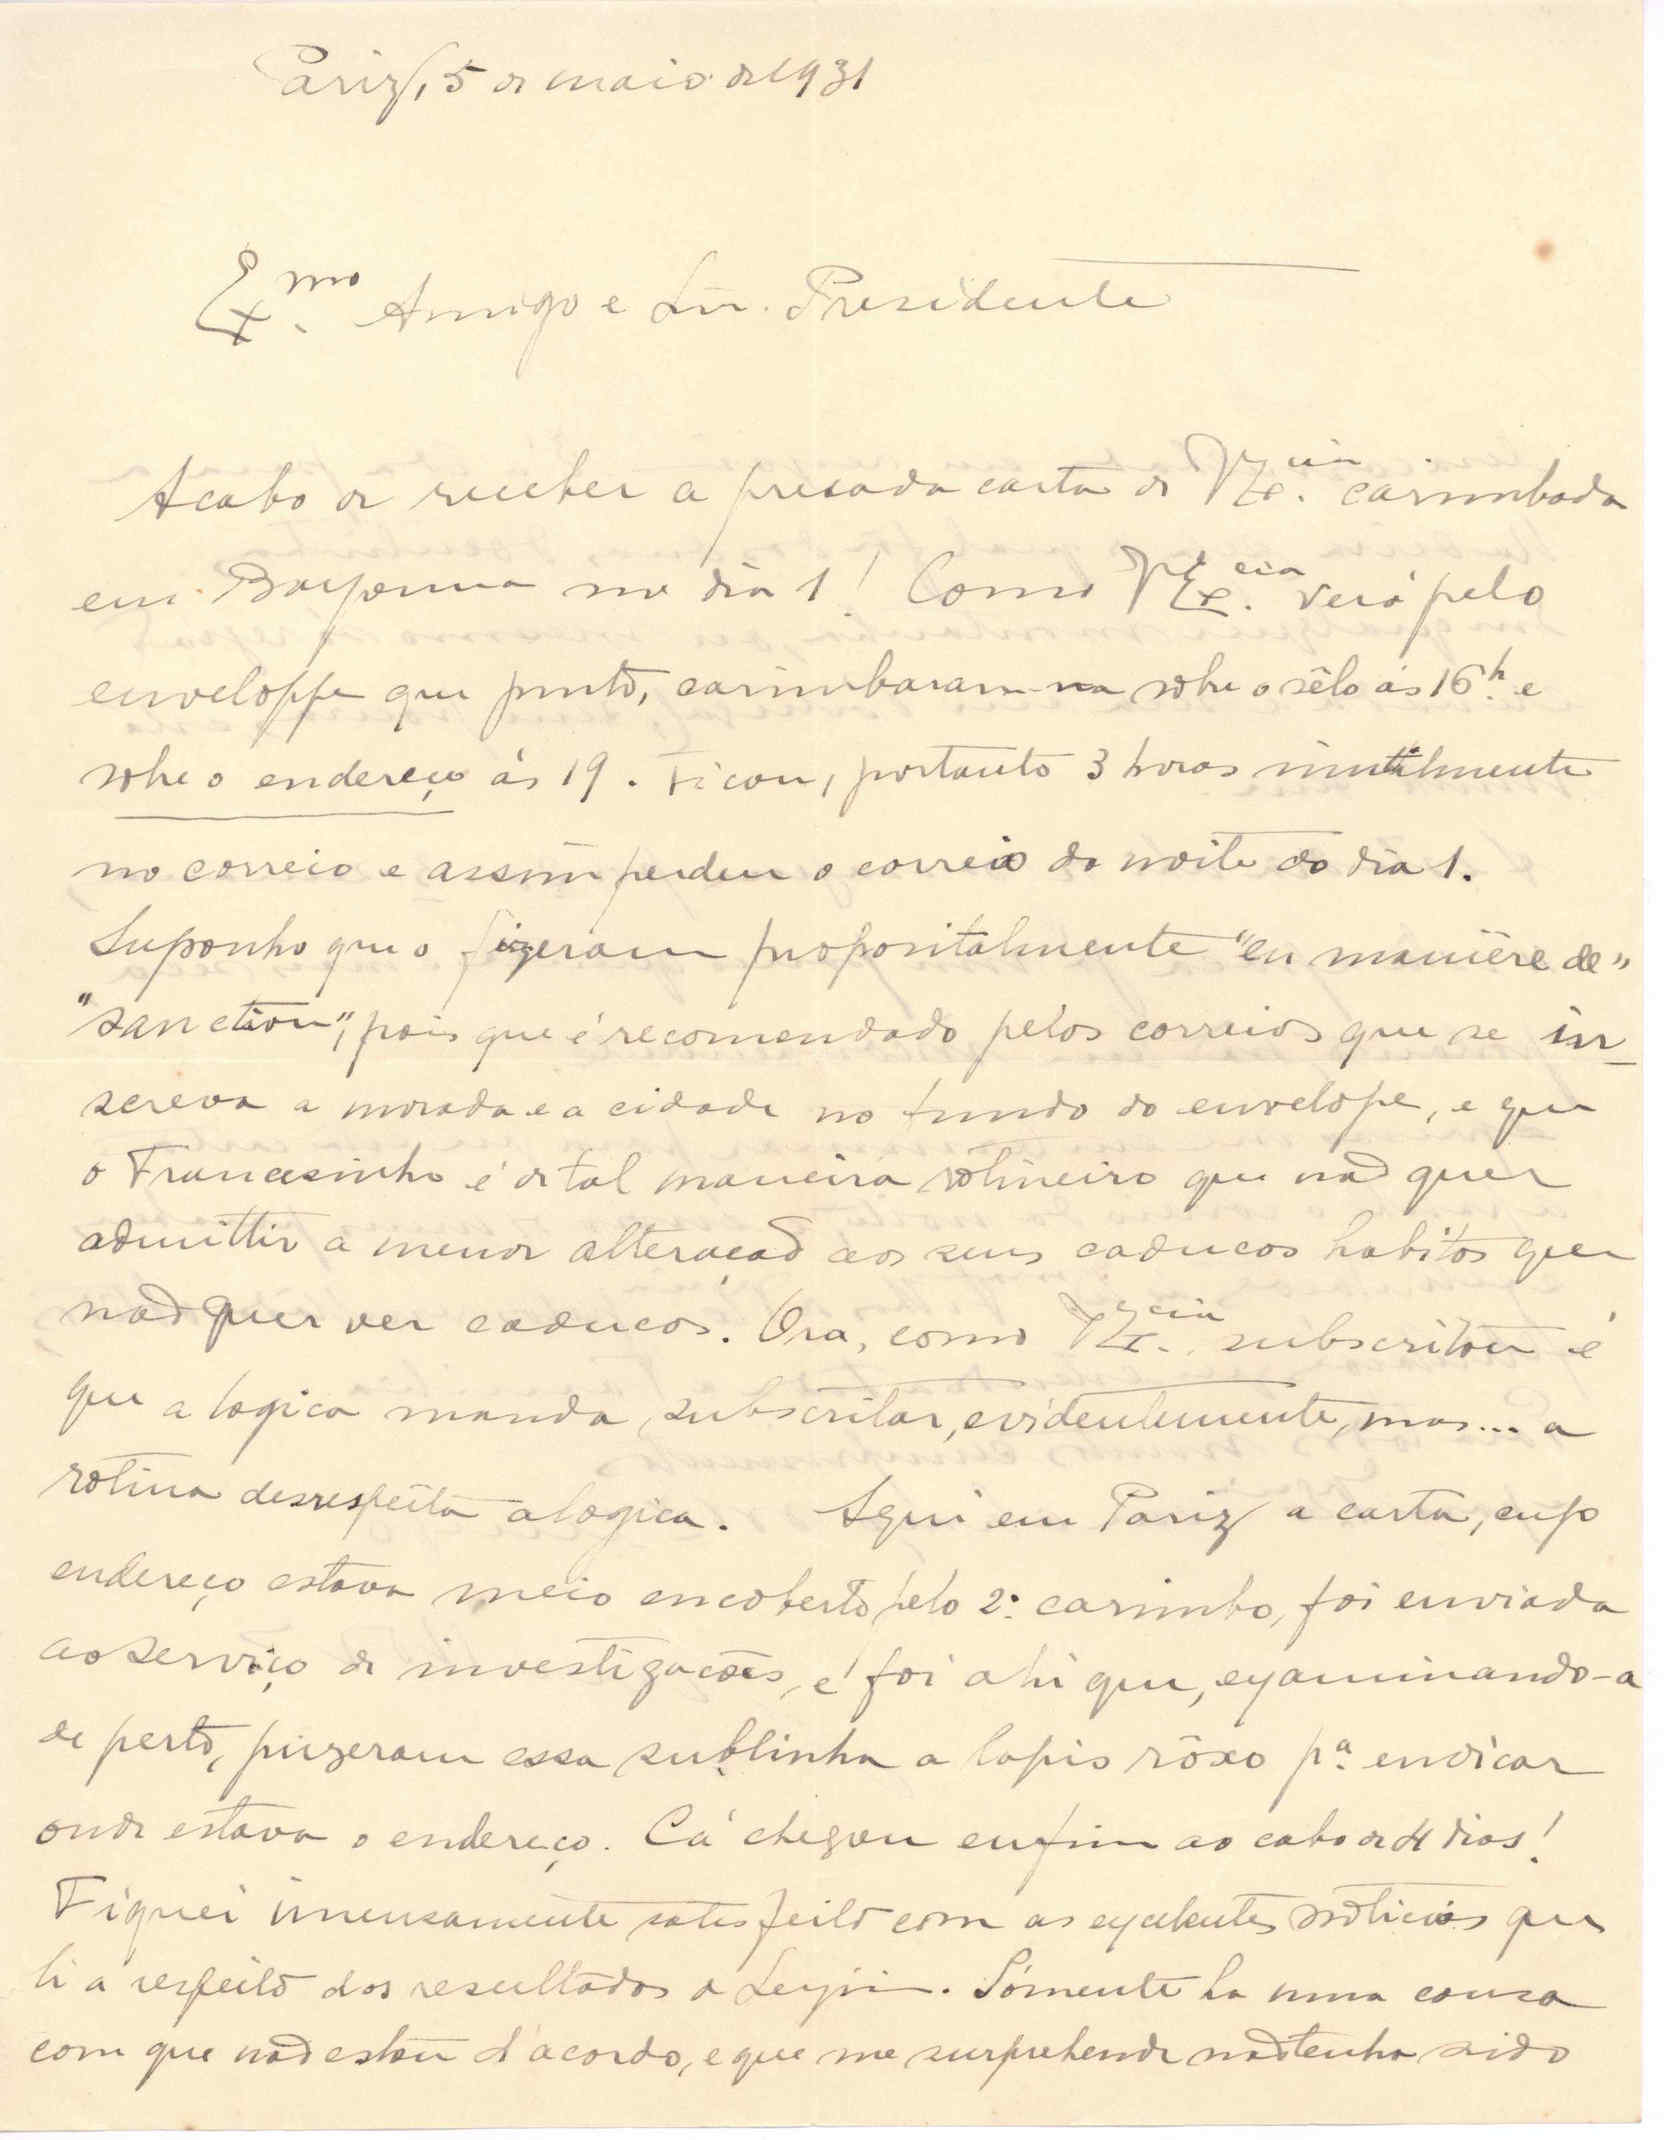 Pariz, 5 de maio de 1931
Ex.mo Amigo e Snr. Presidente
Acabo de receber a presada carta de V.Ex.cia carimbada
em Bayonna no dia 1! Como V.Ex.cia verá pelo
enveloppe que junto, carimbaram-na sobre o sêlo ás 16h. e
sobre o endereço ás 19. Ficou, portanto 3 horas inutilmente
no correio e assim perdeu o correio da noite do dia 1.
Suponho que o fizeram propositalmente "en manière de"
"sanction", pois que é recomendado pelos correios que se in-
screva a morada e a cidade no fundo do envelope, e que
o Francesinho é de tal maneira rotineiro que não quer
admittir a menor alteração aos seus caducos habitos que
não quer ver caducos. Ora, como V.Ex.cia subscritou é
que a logica manda subscritar, evidentemente, mas... a
rotina desrespeita a logica. Aqui em Pariz a carta, cujo
endereço estava meio encoberto pelo 2.º carimbo, foi enviada
ao serviço de investigações, e foi ahi que, examinando-a
de perto, puzeram essa sublinha a lapis rôxo pª. endicar
onde estava o endereço. Cá chegou enfim ao cabo de 4 dias!
Fiquei imensamente satisfeito com as excelentes noticias que
li a respeito dos resultados de . Sómente ha uma cousa
com que não estou d'acordo, e que me surprehende não tenha sido